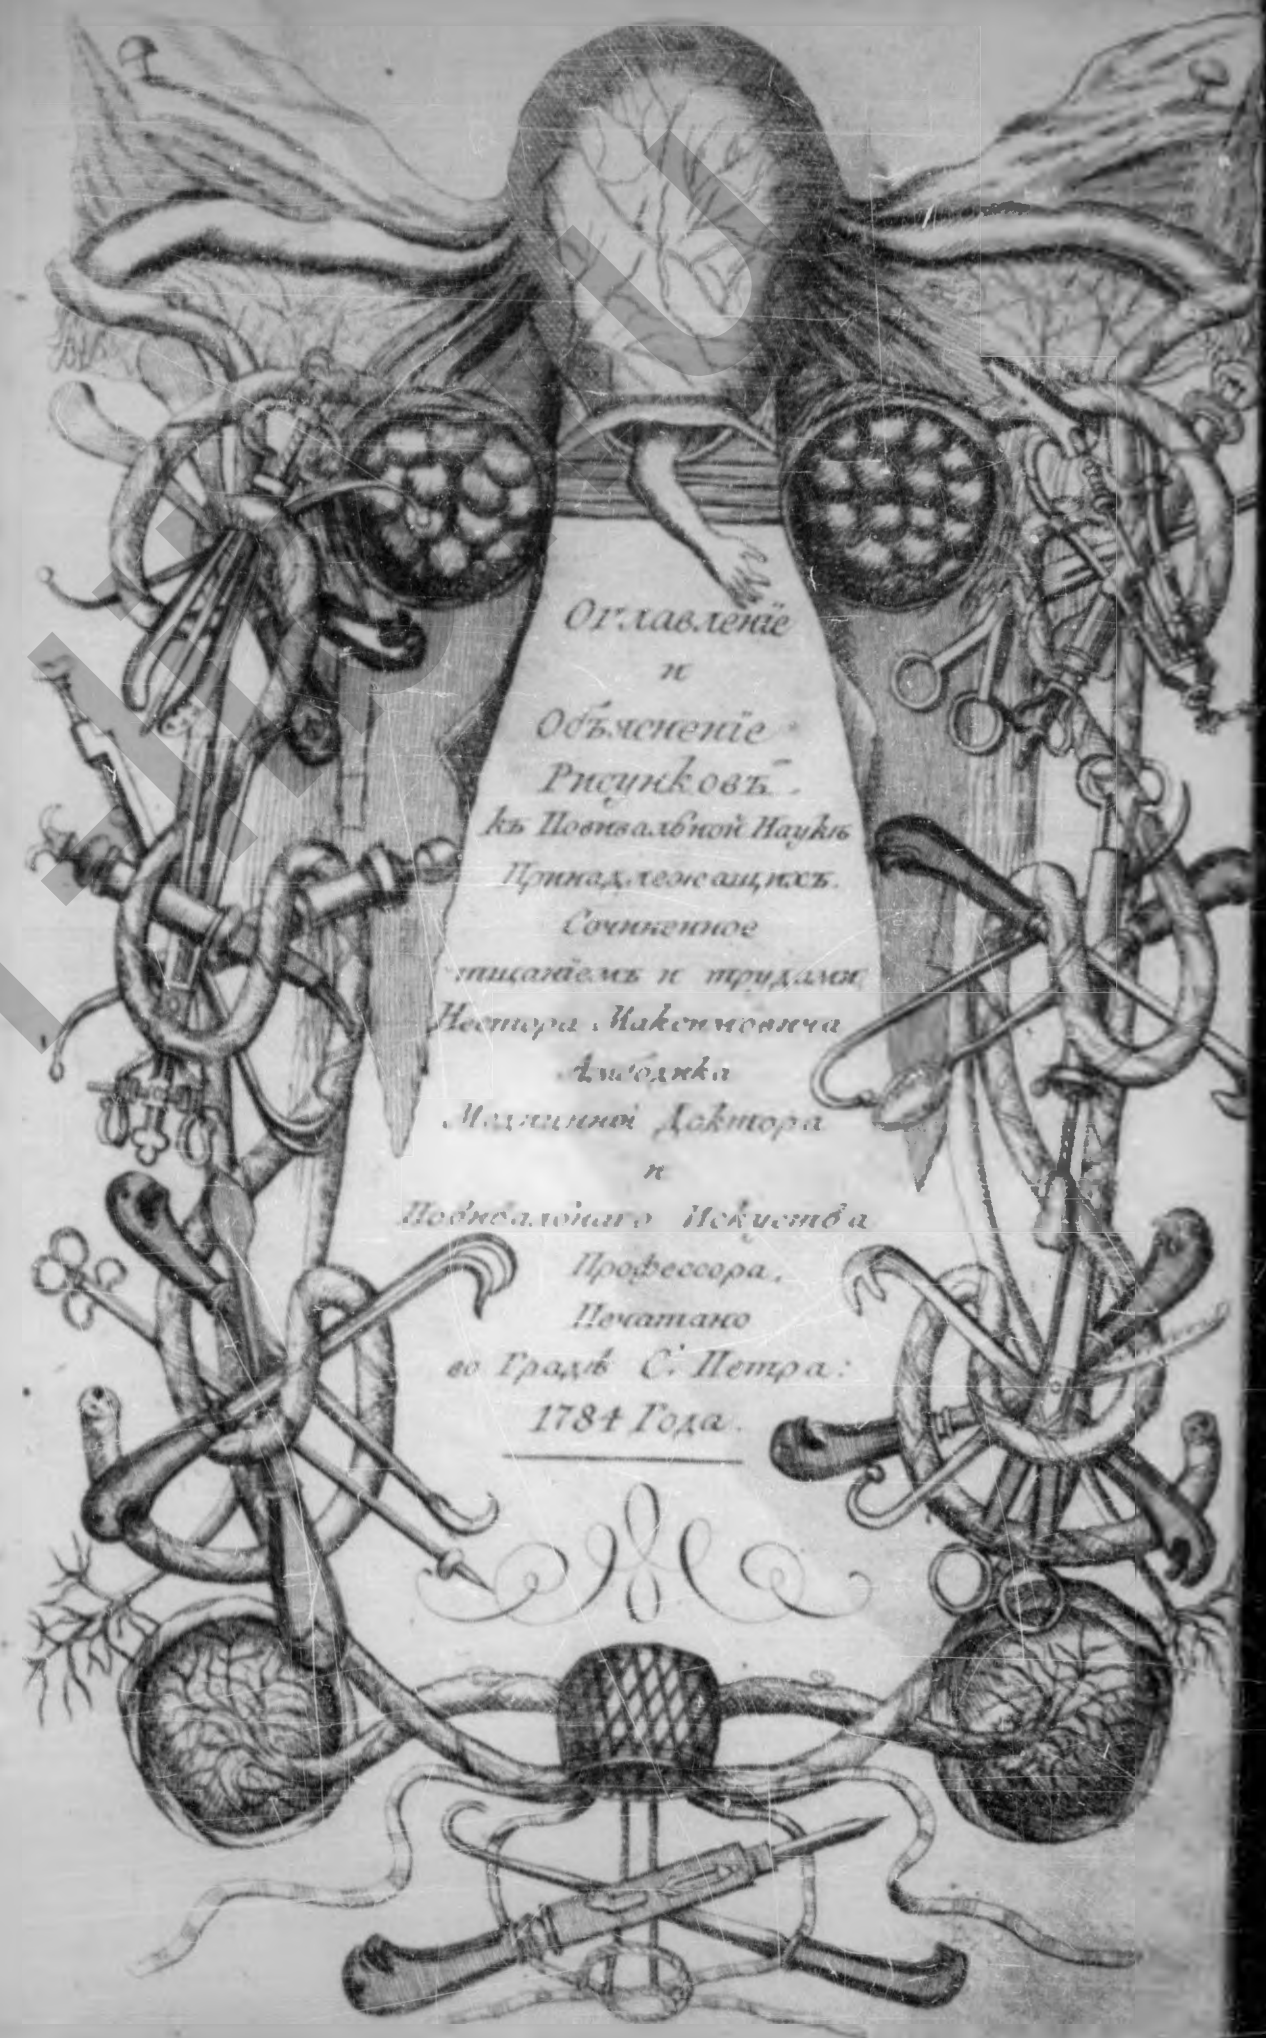 Оглавленїе
и
Объясненїе
Рисунковъ
къ Повивальной Наукѣ
Принадлежащихъ.
Сочиненное
тщанїемъ и трудами
Нестора Максимовича
Амбодика
Медицины Доктора
и
Повивальнаго Искуства
Профессора.
Печатано
во Градѣ С. Петра:
1784 Года.